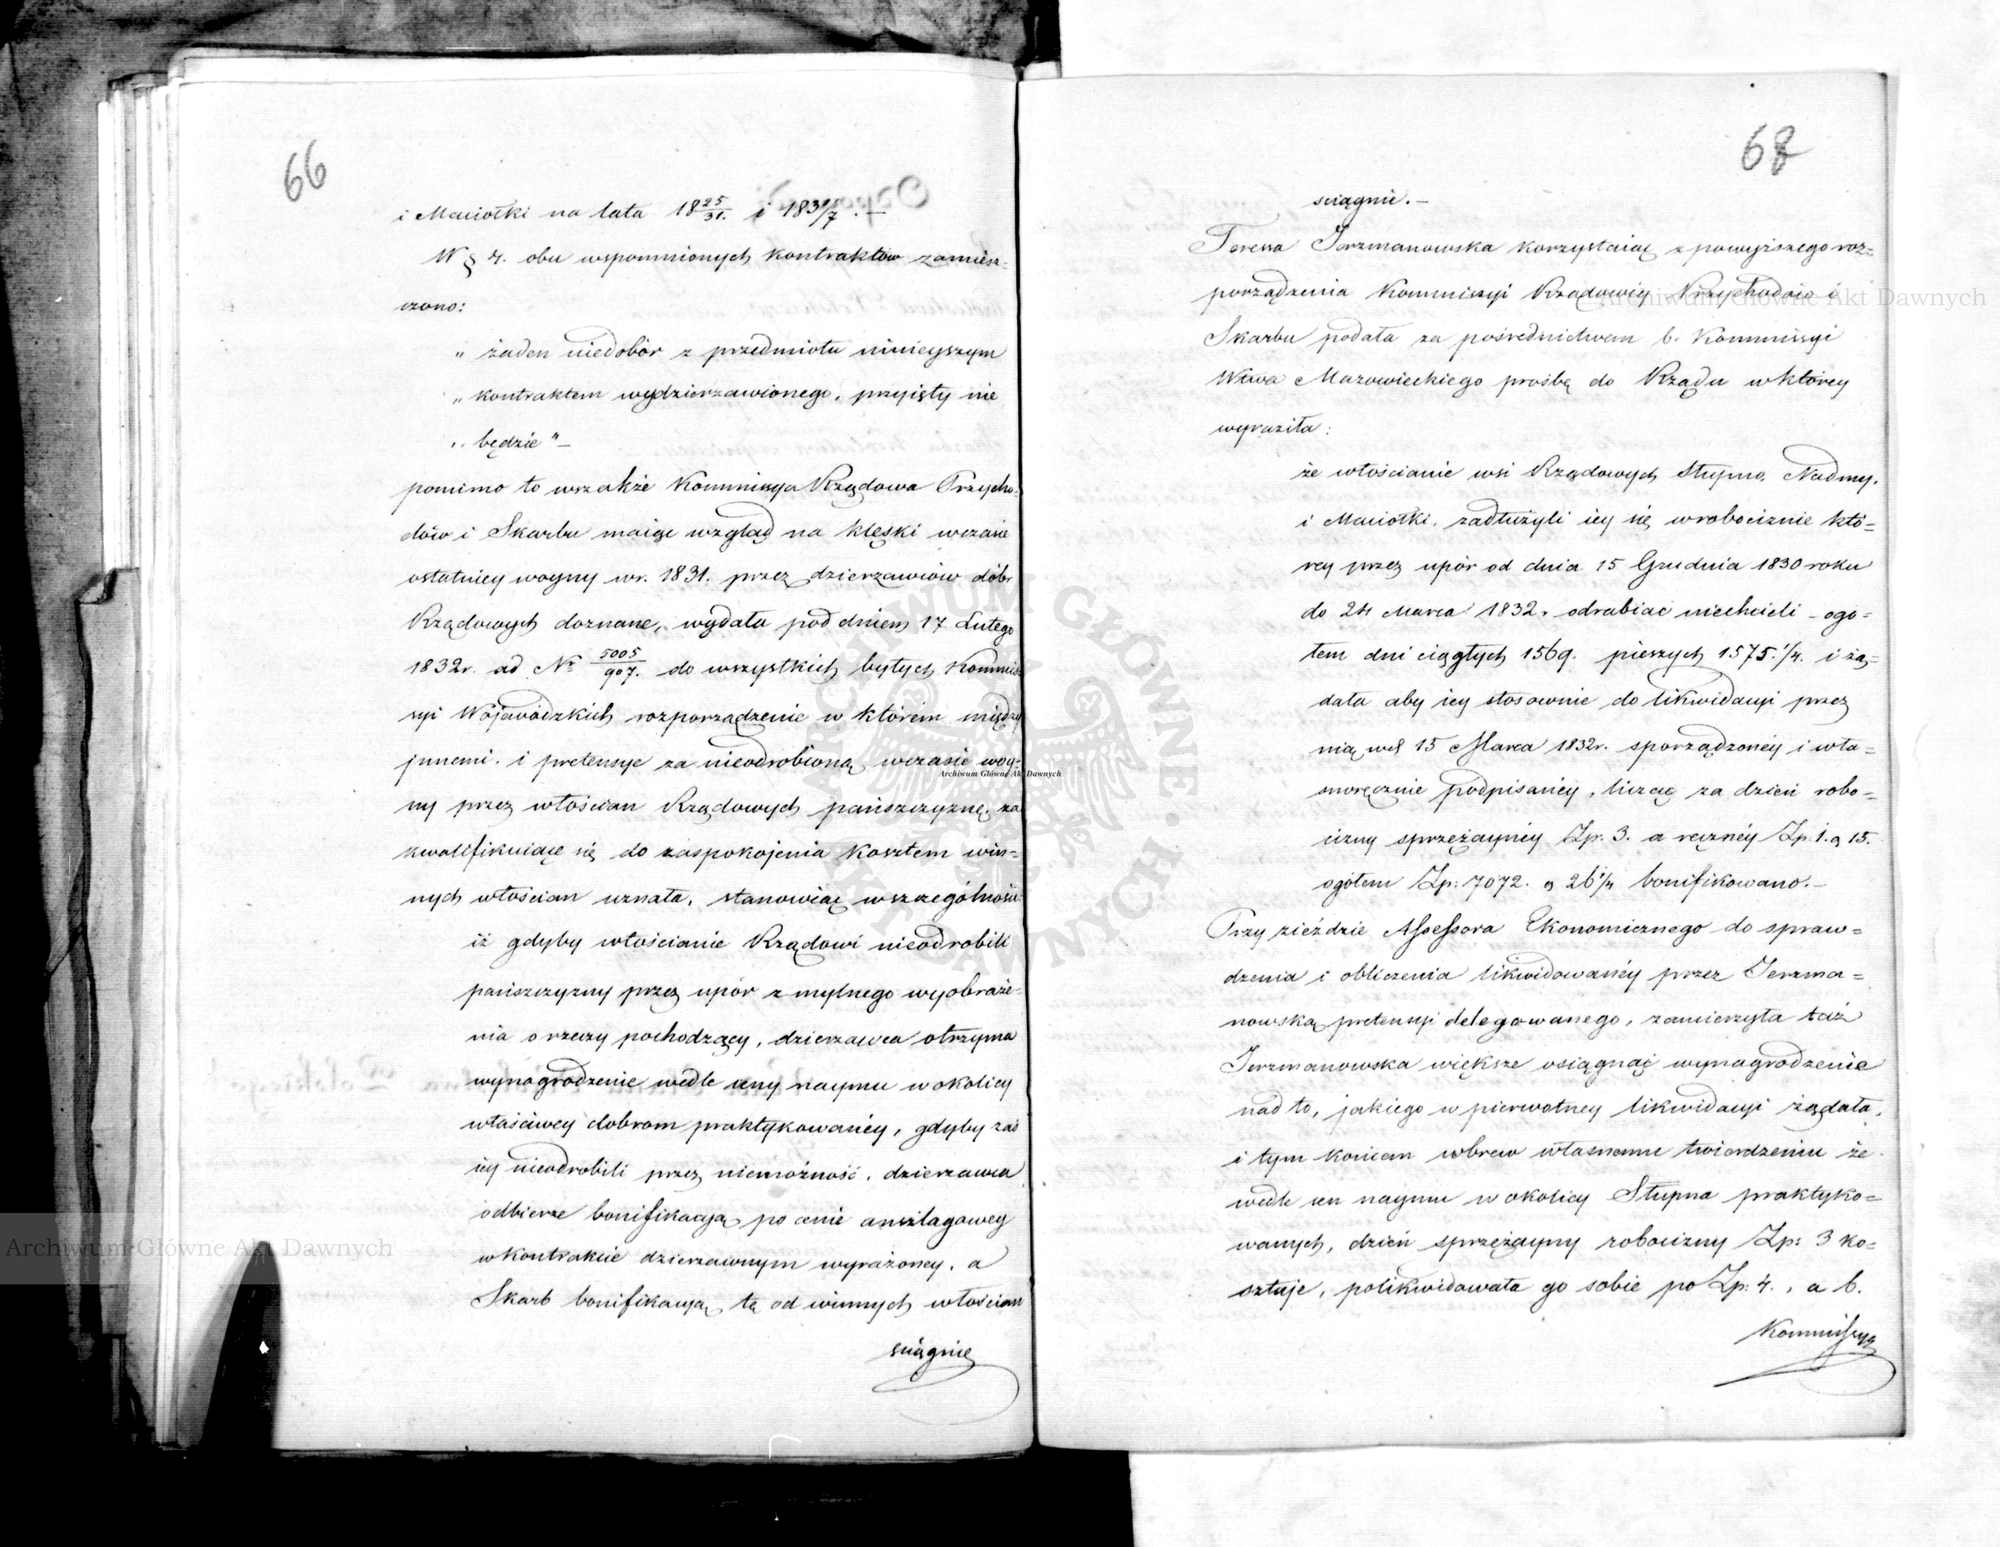 66
i Maciołki na lata 18 25/31. i 183 1/7. —
W § 4. obu wspomnionych kontraktów zamiesz-
czono:
„ żaden niedobór z przedmiotu ninieyszym
„ kontraktem wydzierzawionego, przyięty nie
„ będzie" —
pomimo to wszakże Kommissya Rządowa Przycho-
dów i Skarbu maiąc wzgląd na klęski wczasie
ostatniey woyny wr. 1831. przez dzierzawców dóbr
Rządowych doznane, wydała pod dniem 17 Lutego
1832r. ad Nr 5005/907. do wszystkich byłych Kommis-
syi Wojewódzkich rozporządzenie w którém między
jnnemi i pretensye za nieodrobioną wczasie woy-
ny przez włościan Rządowych pańszczyznę, za
kwalifikuiące się do zaspokojenia kosztem win-
nych włościan uznała, stanowiąc wszczególności
iż gdyby włościanie Rządowi nieodrobili
pańszczyzny przez upór z mylnego wyobraże-
nia o rzeczy pochodzący, dzierzawca otrzyma
wynagrodzenie wedle ceny naymu w okolicy
właściwey dobrom praktykowanéy, gdyby zaś
iey nieodrobili przez niemożność, dzierzawca
odbierze bonifikacyą po cenie anszlagowey
w kontrakcie dzierzawnym wyrażoney, a
Skarb bonifikacyą tę od winnych włościan
sciągnie
68
sciągnie. —
Teressa Jerzmanowska korzystaiąc z powyższego roz-
porządzenia Kommissyi Rządowéy Przychodów i
Skarbu podała za pośrednictwem b. Kommissyi
Wwa Mazowieckiego prośbę do Rządu w którey
wyraziła:
że włościanie wsi Rządowych Słupno, Nadmy,
i Maciołki, zadłużyli iey się wrobociznie któ-
rey przez upór od dnia 15 Grudnia 1830 roku
do 24 Marca 1832. odrabiać niechcieli - ogo-
łem dni ciągłych 1569. pieszych 1575.1/4. i żą-
dała aby iey stosownie do likwidacyi przez
nią wd 15 Marca 1832r. sporządzonéy i wła-
snoręcznie podpisanéy, licząc za dzień robo-
cizny sprzężayney Zp. 3. a ręcznéy Zp. 1. g 15.
ogółem Zp: 7072. g 26 1/4 bonifikowano. —
Przy zieździe Assessora Ekonomicznego do spraw-
dzenia i obliczenia likwidowanéy przez Jerzma-
nowską pretensyi delegowanego, zamierzyła taż
Jerzmanowska większe osiągnąć wynagrodzenie
nad to, jakiego w pierwotney likwidacyi żądała,
i tym końcem wbrew własnemu twierdzeniu że
wedle cen naymu w okolicy Słupna praktyko-
wanych, dzień sprzężayny robocizny Zp: 3 ko-
sztuje, polikwidowała go sobie po Zp: 4., a b.
Kommissya
Archiwum Główne Akt Dawnych
Archiwum Główne Akt Dawnych
Archiwum Główne Akt Dawnych
ARCHIWUM GŁÓWNE AKT DAWNYCH